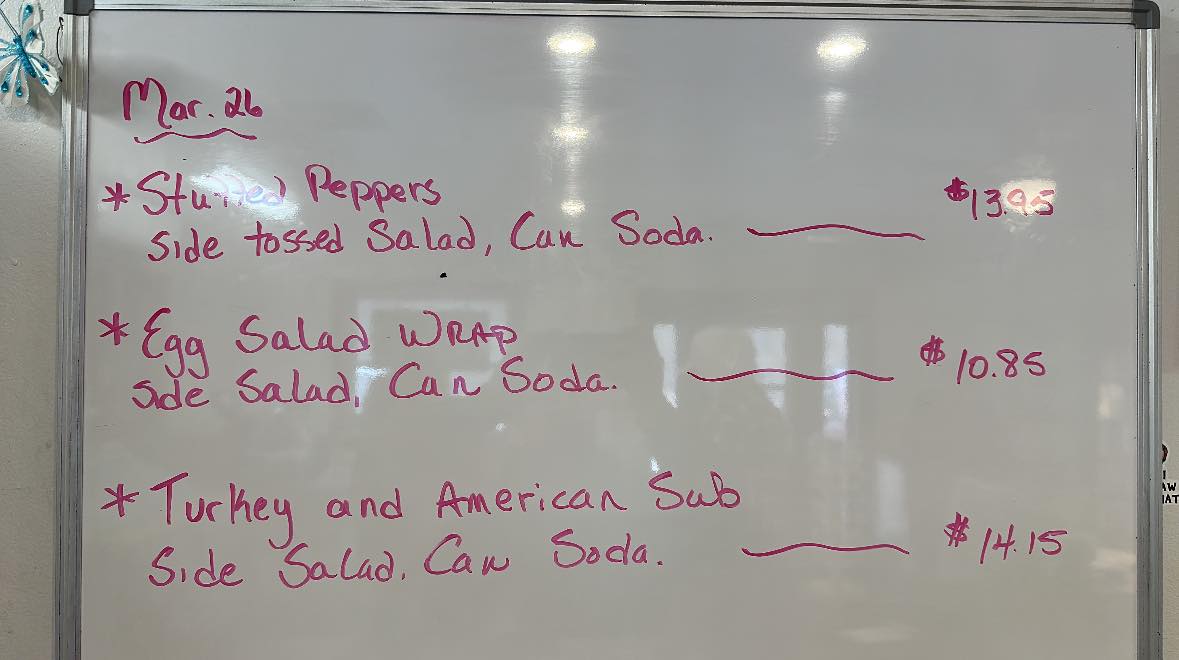 Mar. 26
* Stuffed Peppers
Side tossed Salad, Can Soda. $13.95
* Egg Salad WRAP
side Salad, Can Soda. $10.85
* Turkey and American Sub
Side Salad. Can Soda. $14.15